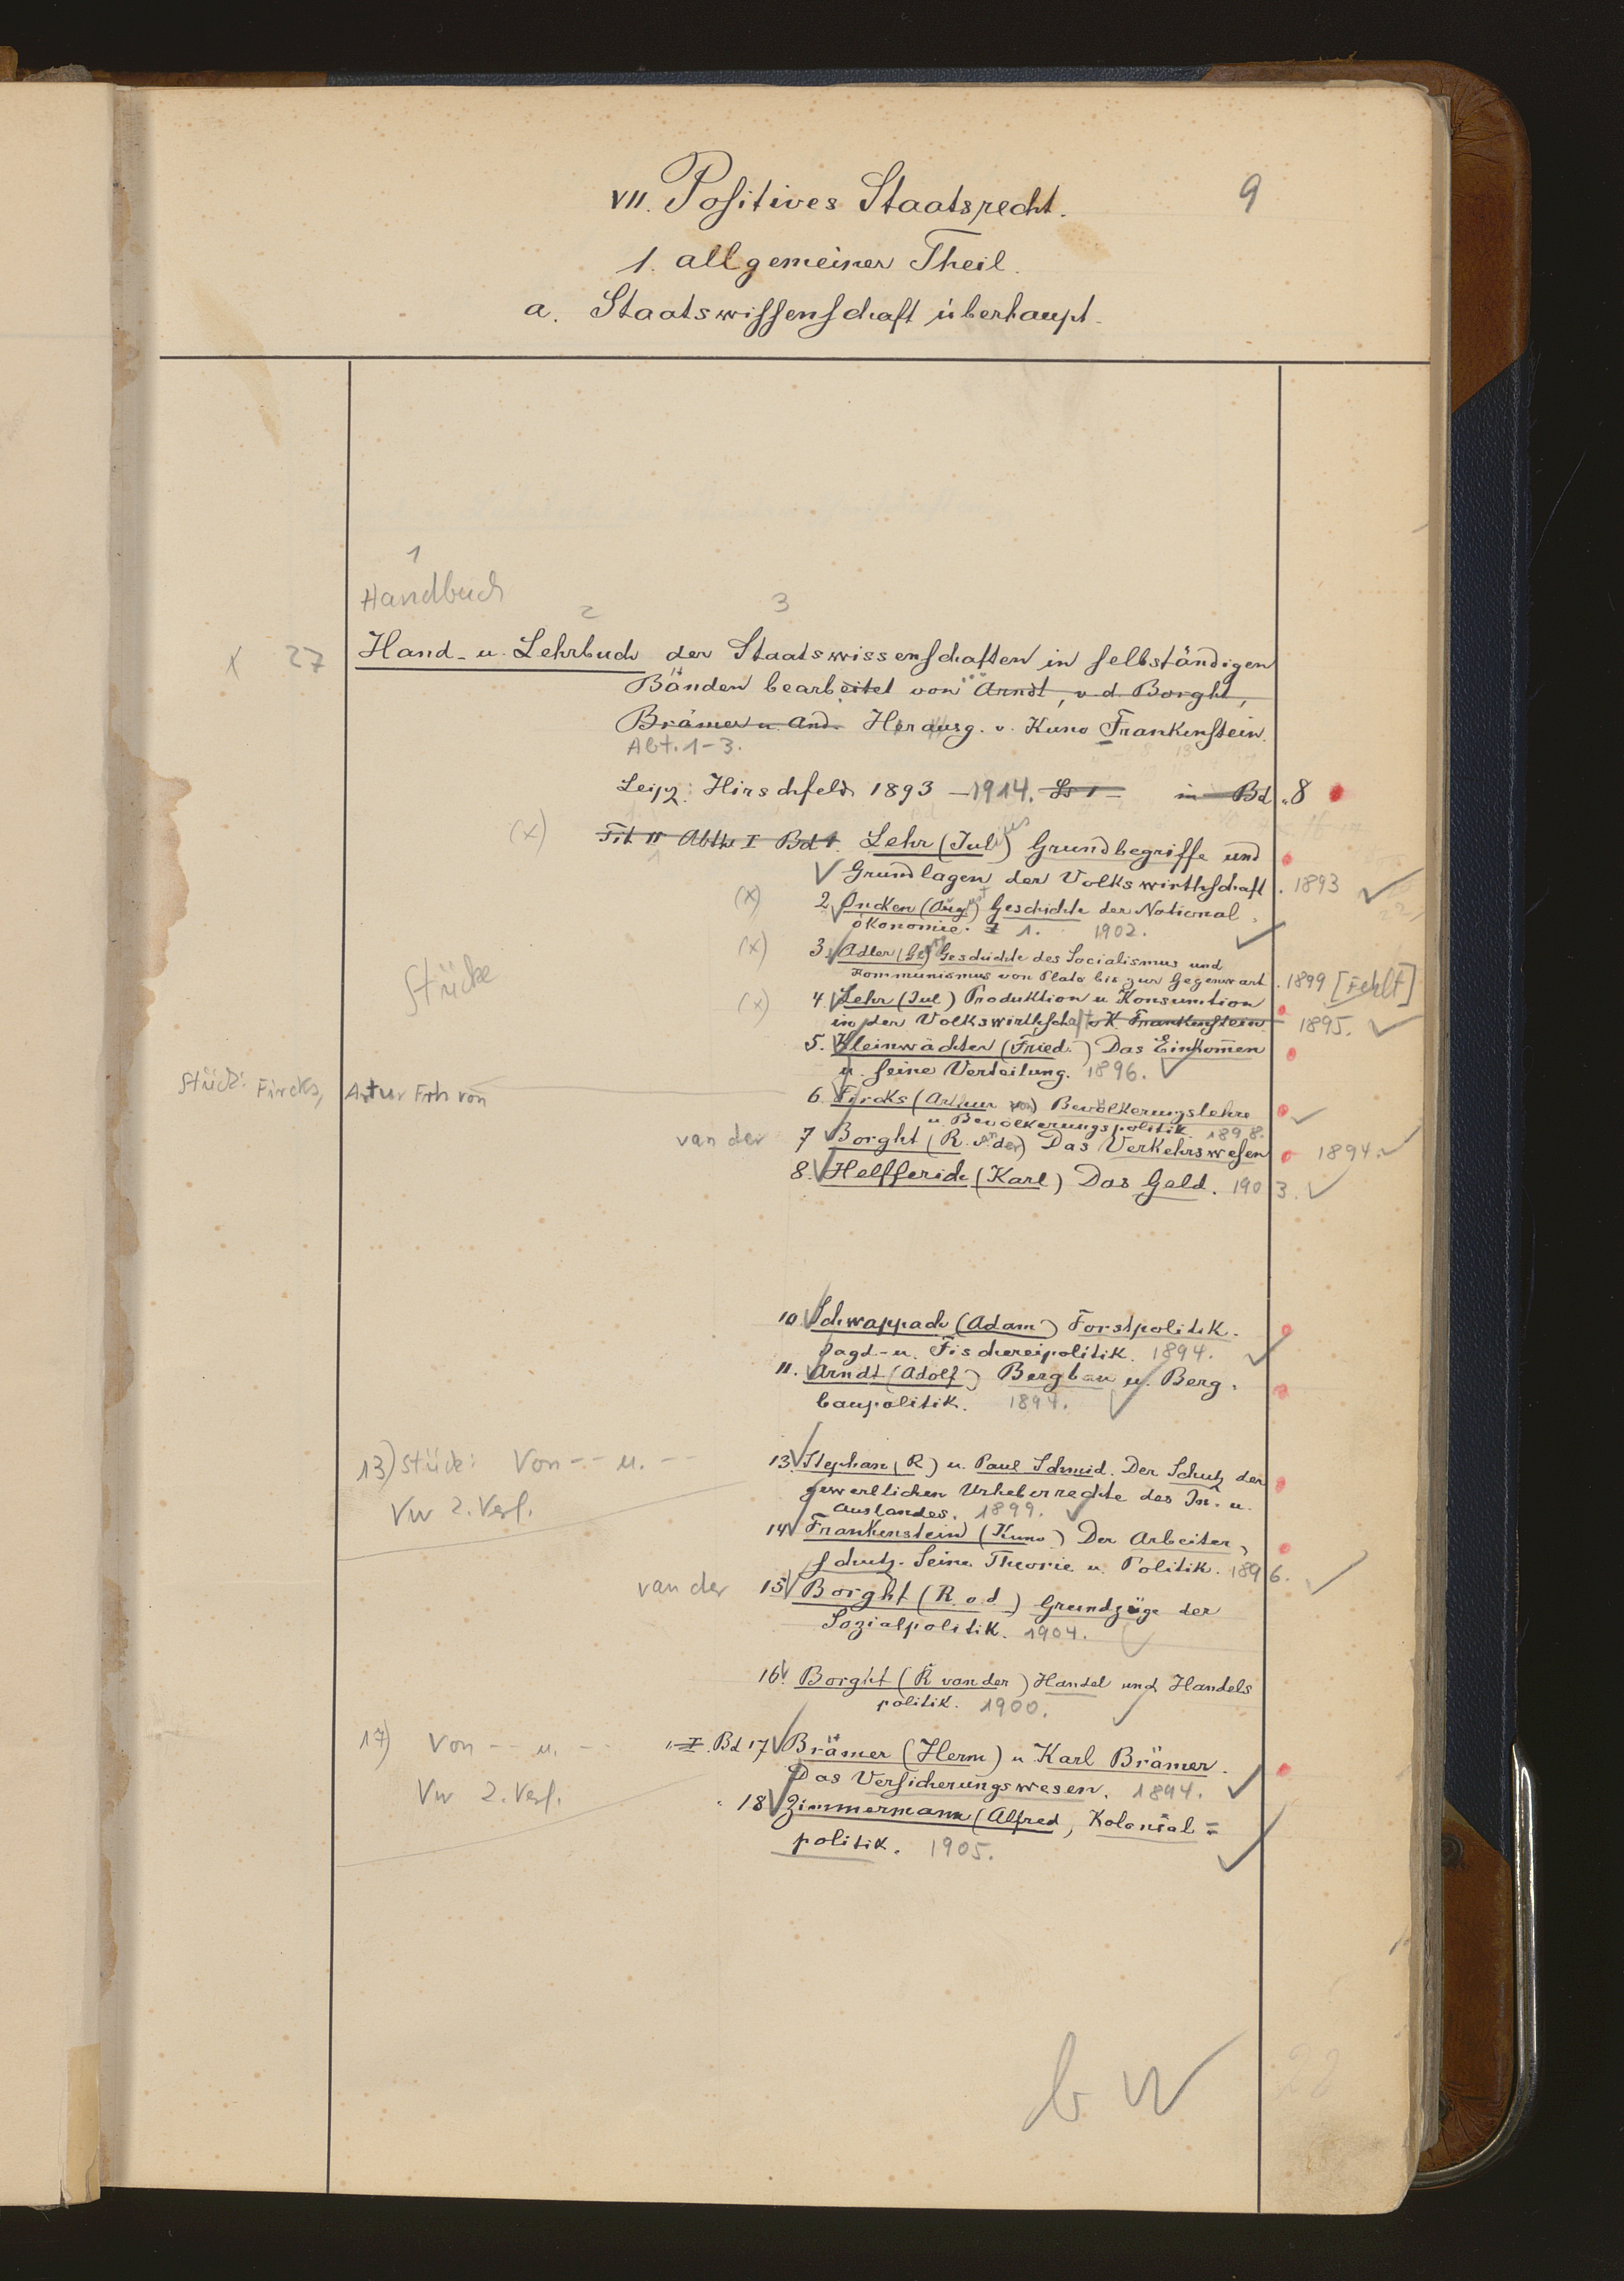 VII. Positives Staatsrecht. 9
1. allgemeiner Theil.
a. Staatswissenschaft überhaupt.
1
Handbuch
2 3
x 27 Hand- u. Lehrbuch der Staatswissenschaften in selbständigen
Bänden bearbeitet von Arndt, v. d. Borght,
Brämer u. And. Herausg. v. Kuno Frankenstein.
Abt. 1-3.
Leipz. Hirschfeld 1893 -1914. in Bd. 8
(x) Abth I Bd 1. Lehr (Julius) Grundbegriffe und
Grundlagen der Volkswirthschaft. 1893
(x) 2. Oncken (August) Geschichte der National-
ökonomie. 1. 1902.
(x) 3. Adler (Georg) Geschichte des Socialismus und
Kommunismus von Plato bis zur Gegenwart. 1899 [Fehlt]
Stücke
(x) 4. Lehr (Jul) Produktion u Konsumtion
in der Volkswirthschaft v K. Frankenstein 1895.
5. Kleinwächter (Fried.) Das Einkom̅en
u. seine Verteilung. 1896.
Stück: Fircks, Artur Frh von
6. Fircks (Arthur von) Bevölkerungslehre
u. Bevölkerungspolitik. 1898.
van der 7 Borght (R. v. der) Das Verkehrswesen 1894.
8. Helfferich (Karl) Das Geld. 1903.
10. Schwappach (Adam) Forstpolitik.
Jagd- u. Fischereipolitik. 1894.
11. Arndt (Adolf) Bergbau u. Berg-
baupolitik. 1894.
13) Stück: Von -- u. --
Vw 2. Verf.
13. Stephan (R) u. Paul Schmid. Der Schutz der
gewerblichen Urheberrechte des In- u.
Auslandes. 1899.
14 Frankenstein (Kuno) Der Arbeiter-
schutz. Seine Theorie u. Politik. 1896.
van der 15 Borght (R. v. d.) Grundzüge der
Sozialpolitik. 1904.
16. Borght (R van der) Handel und Handels
politik. 1900.
17) Von -- u. --
Vw 2. Verf.
I. Bd 17 Brämer (Herm) u Karl Brämer.
Das Versicherungswesen. 1894.
18 Zimmermann (Alfred, Kolonial=
politik. 1905.
b W
22